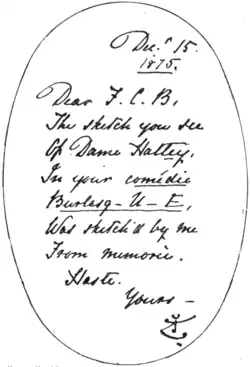 Dec.r 15.
1875.
Dear F. C. B,
The sketch you see
Of Dame Hatley,
In your comédie
Burlesq-U-E,
Was sketch'd by me
From memorie.
Haste.
Yours —